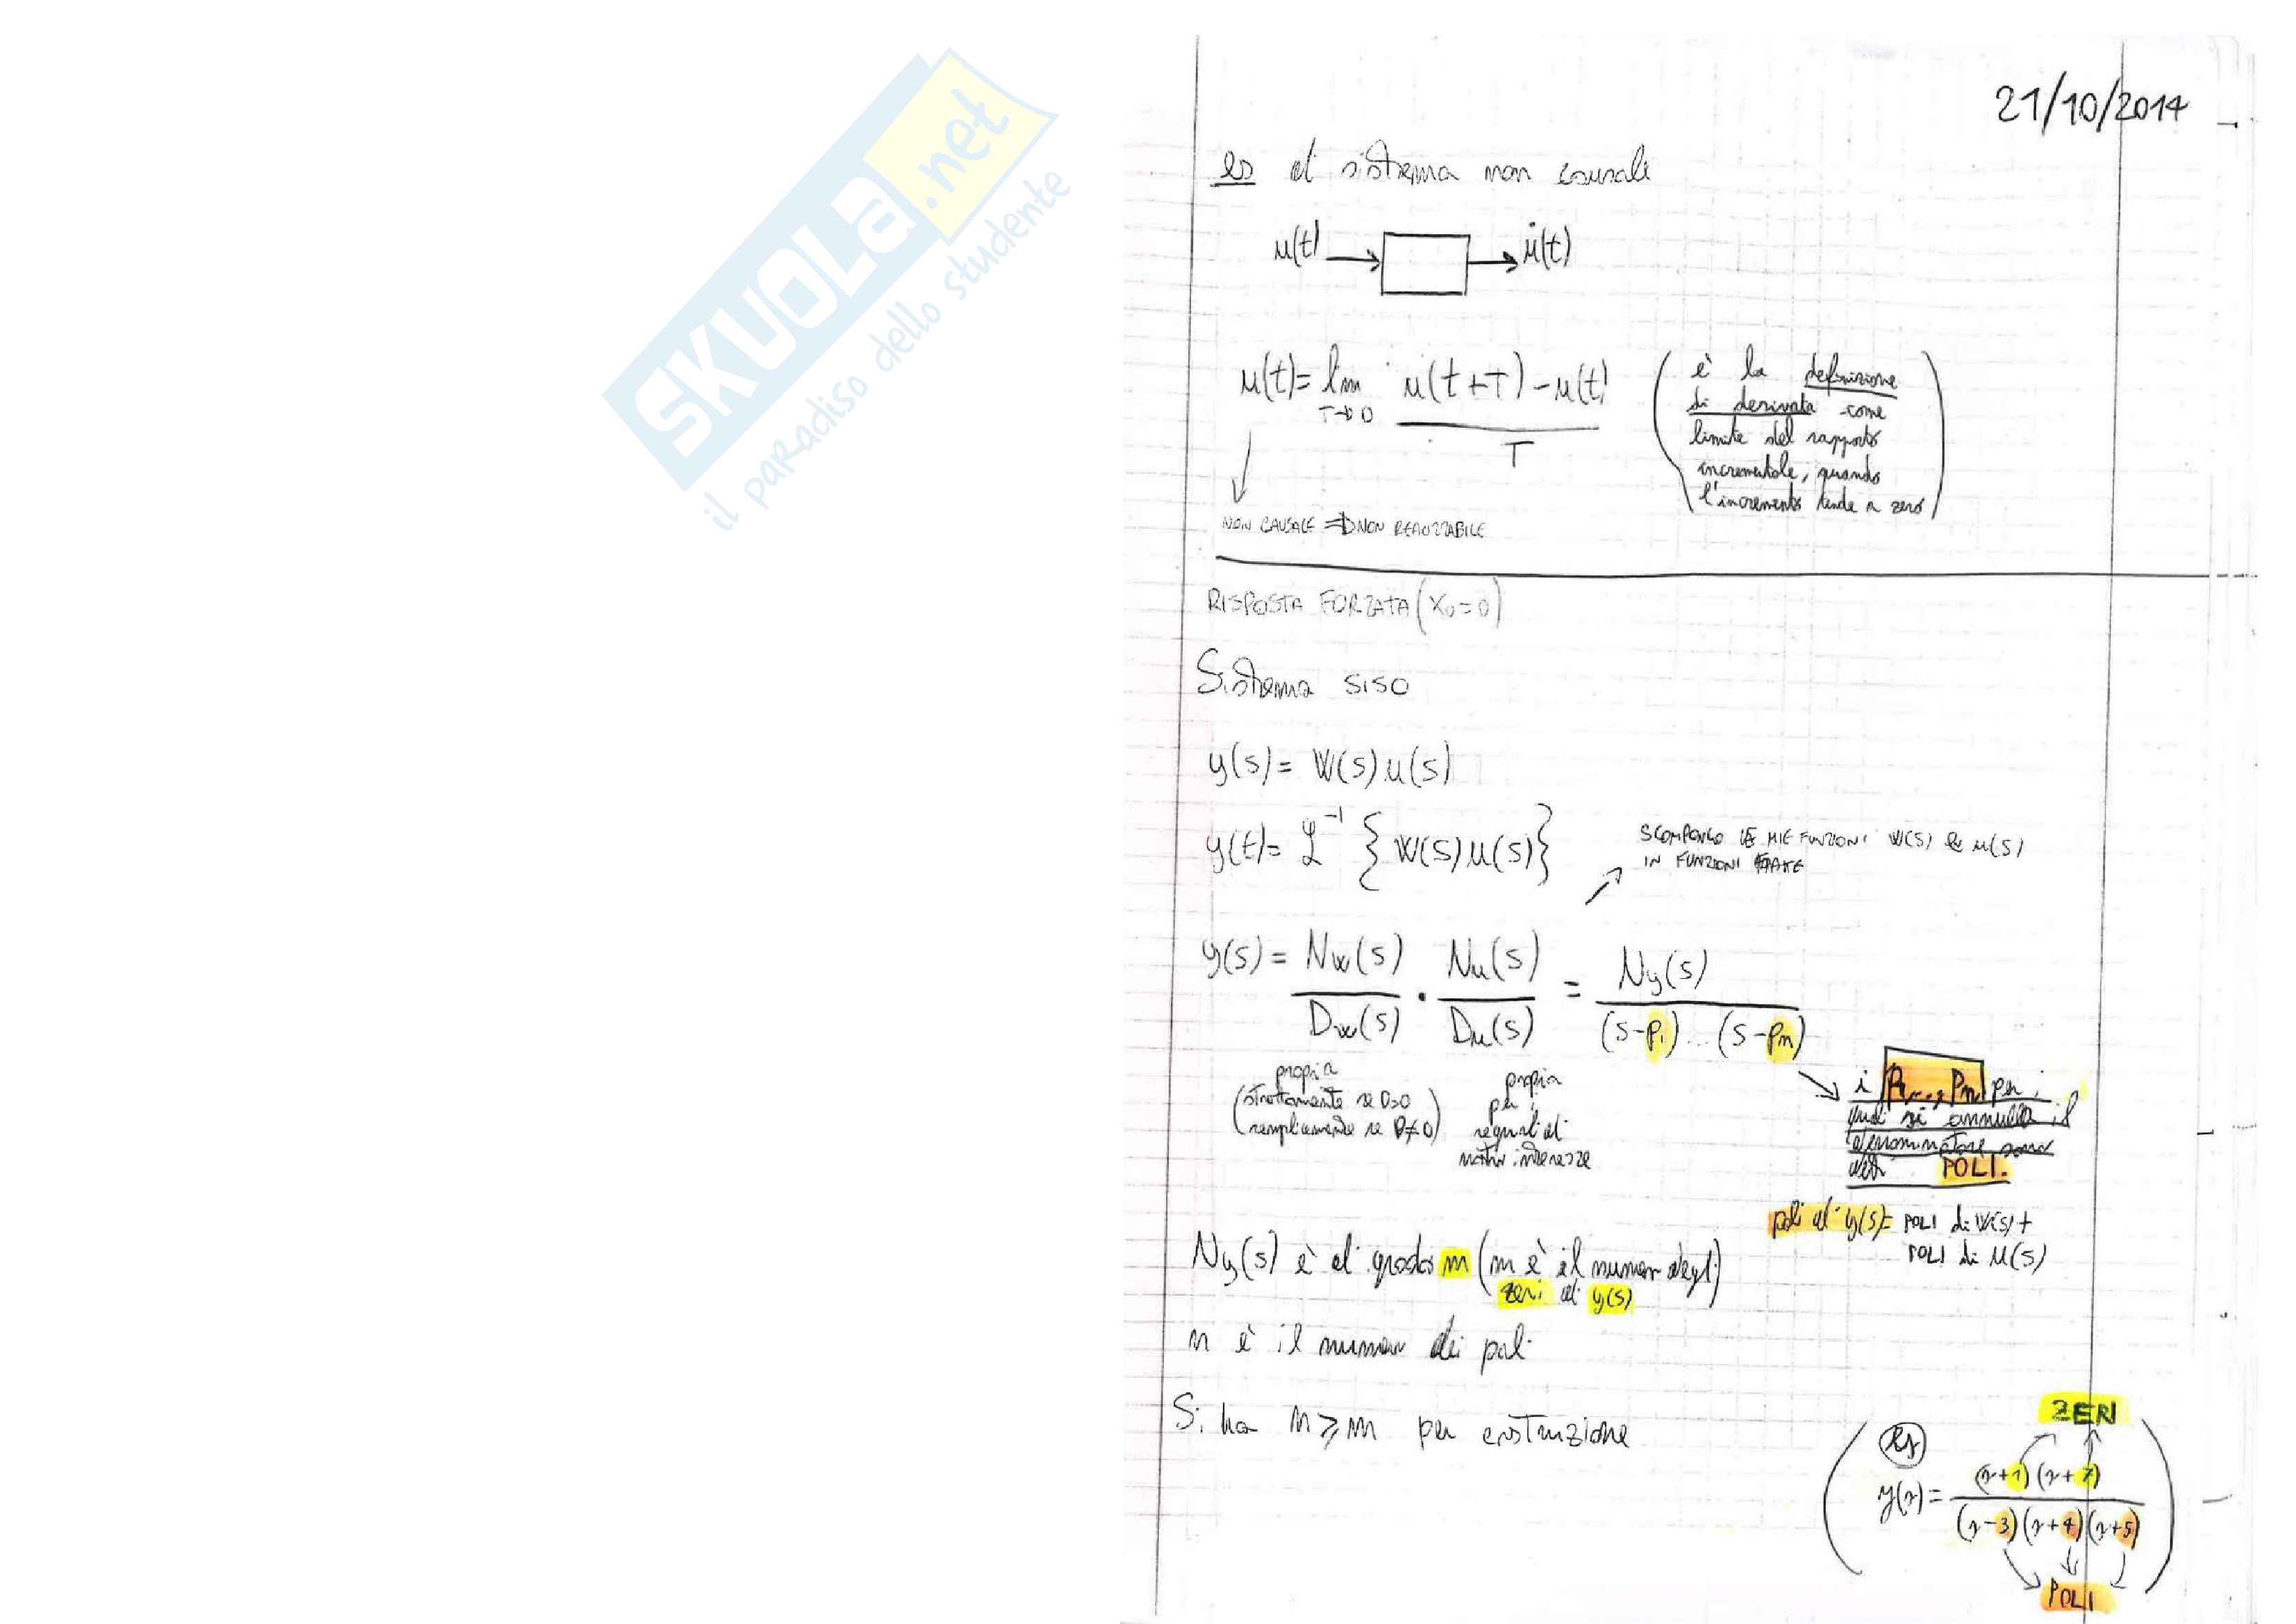 SKUOLA.net
il paradiso dello studente
21/10/2014
es di sistema non causale
u(t) → → u̇(t)
u(t) = lim T→0 u(t+T) - u(t) / T
(è la definizione
di derivata come
limite del rapporto
incrementale, quando
l'incremento tende a zero)
NON CAUSALE ⇒ NON REALIZZABILE
RISPOSTA FORZATA (x₀=0)
Sistema SISO
y(s) = W(s) u(s)
y(t) = ℒ⁻¹ { W(s) u(s) }
SCOMPONGO LE MIE FUNZIONI W(S) e u(s)
IN FUNZIONI FRATTE
y(s) = Nw(s) / Dw(s) · Nu(s) / Du(s) = Ny(s) / (s-p₁)...(s-pn)
propria
(strettamente se D=0
semplicemente se D≠0)
propria
per i
segnali di
nostro interesse
i P₁,..., Pn per i
quali si annulla il
denominatore sono
detti POLI.
poli di y(s) = POLI di W(s) +
POLI di u(s)
Ny(s) è di grado m (m è il numero degli
zeri di y(s))
n è il numero dei poli
Si ha n ≥ m per costruzione
ZERI
es
y(s) = (s+1)(s+7) / (s-3)(s+4)(s+5)
POLI